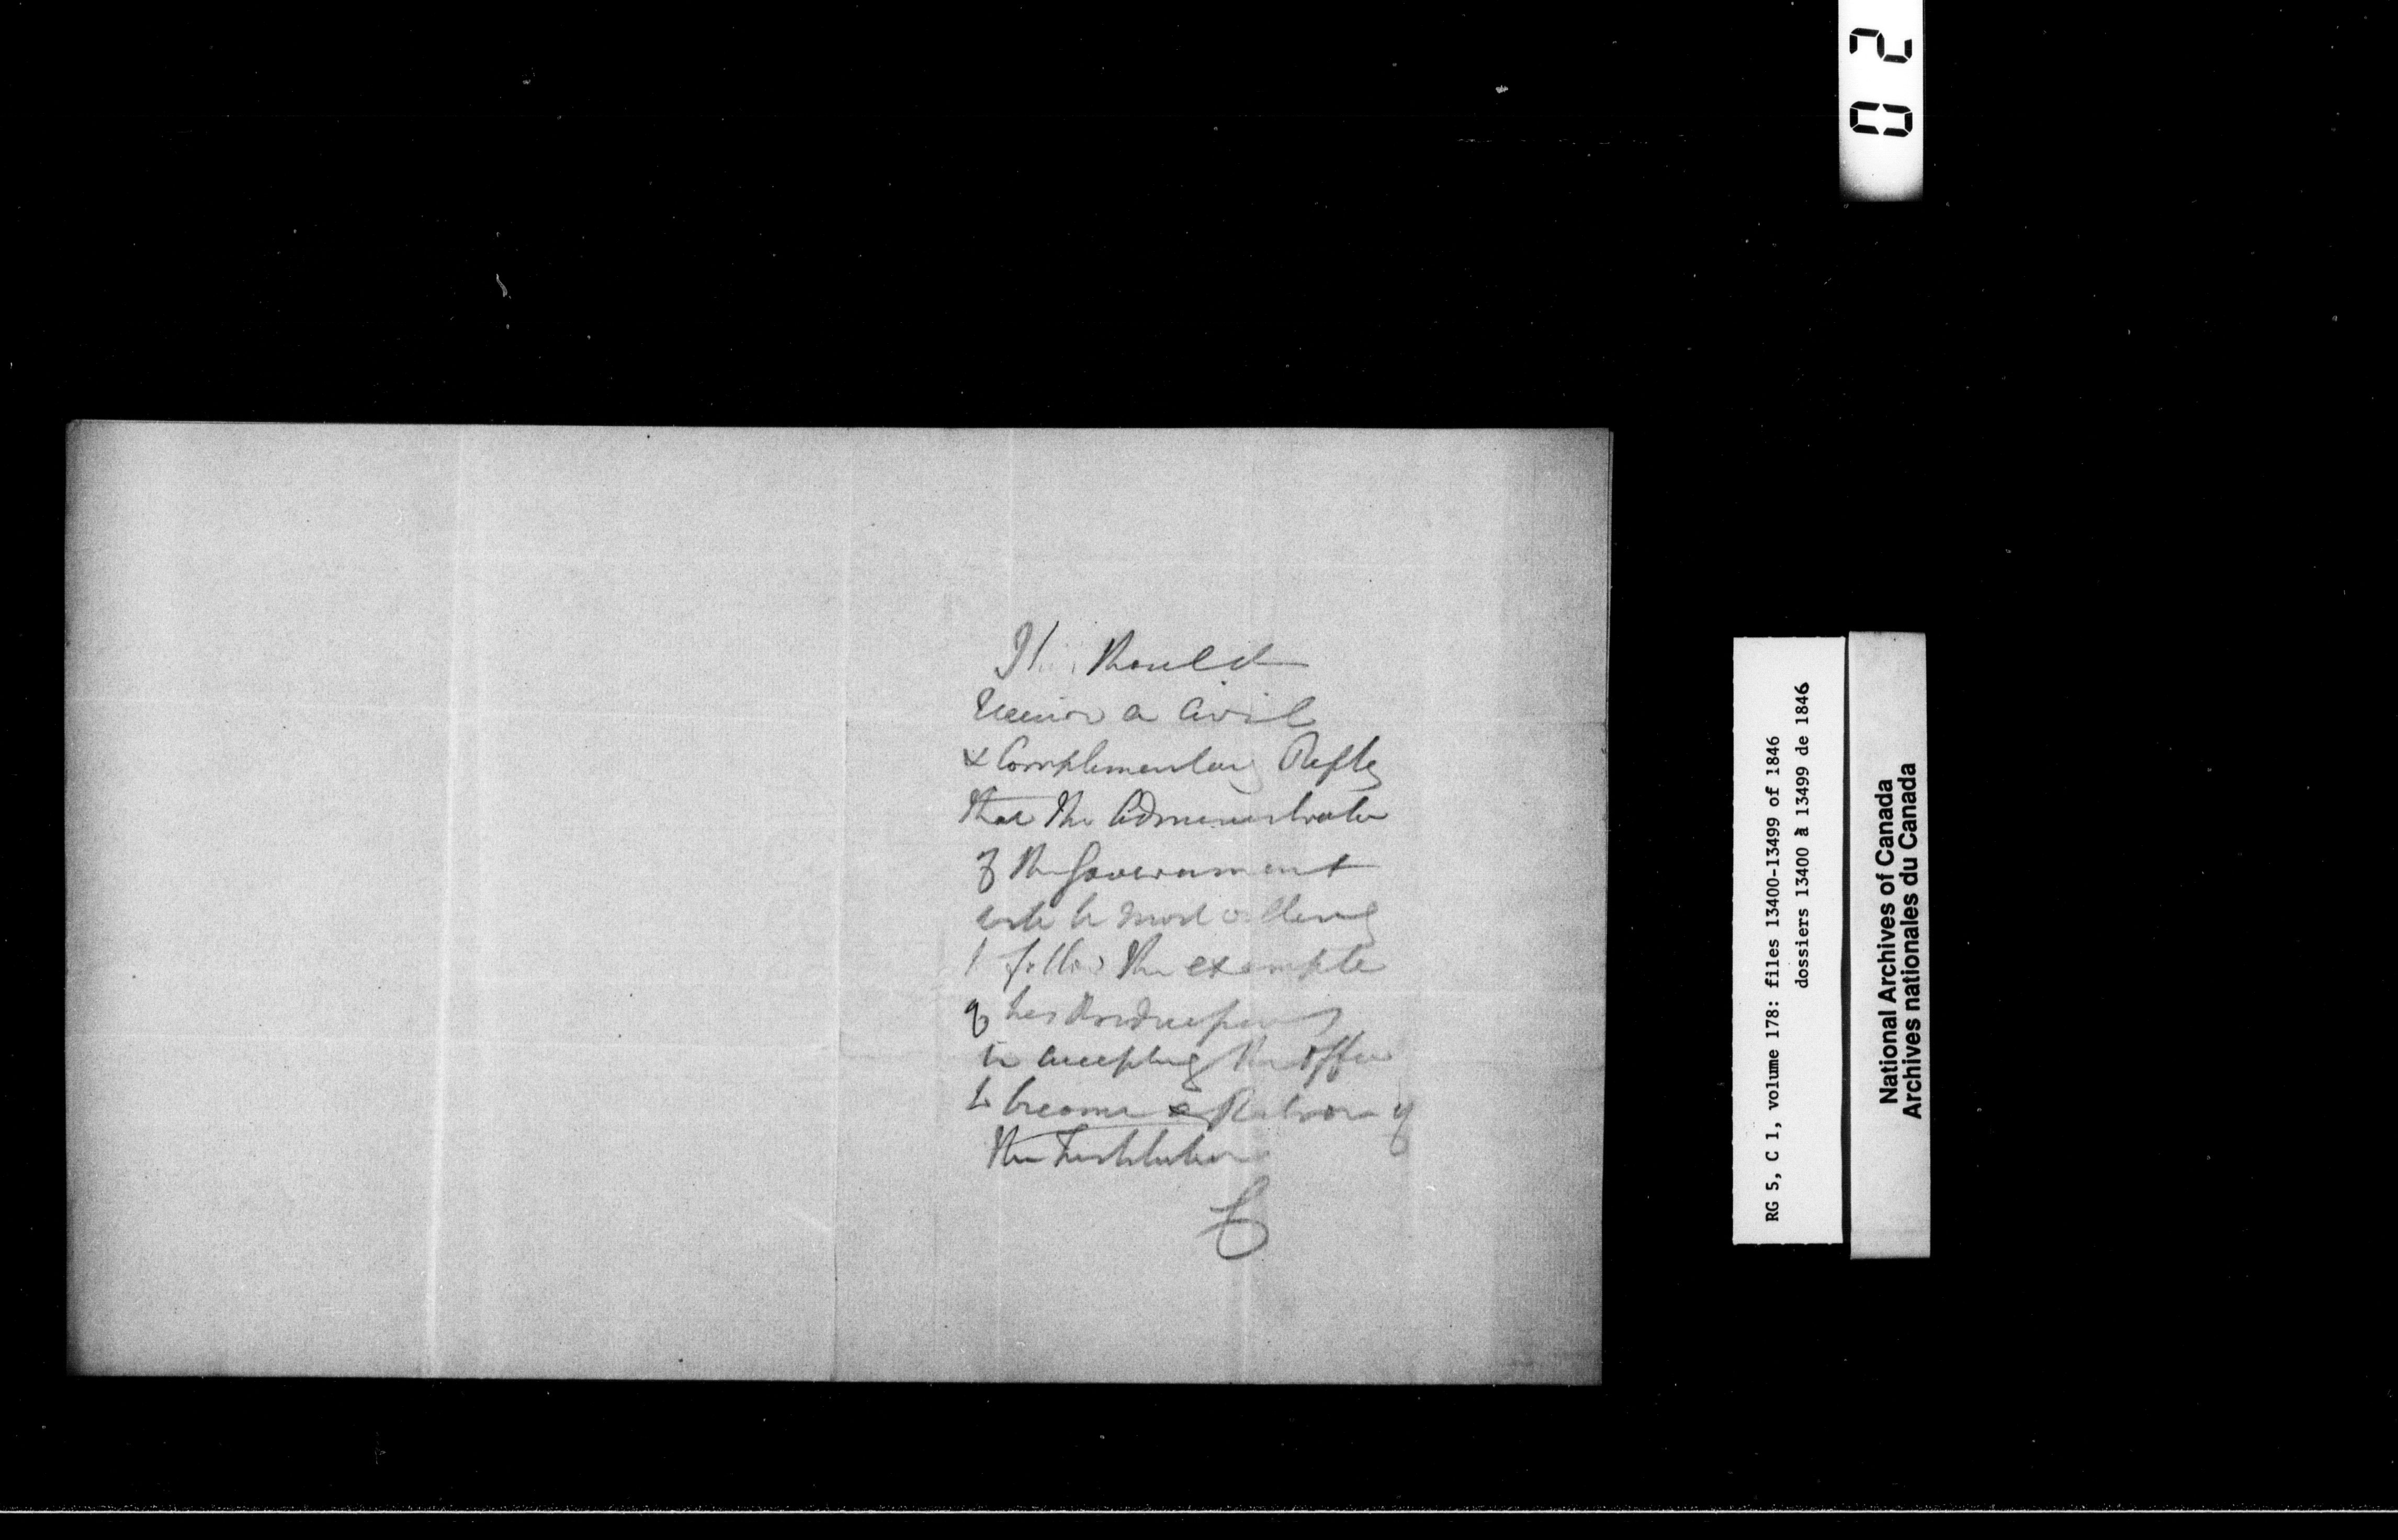 This should
receive a Civil
& Complimentary Reply
that the Administrator
of the Government
will be most willing
to follow the example
of his Predecessors
in accepting the offer
to become a Patron of
the Institution
02
RG 5, C 1, volume 178: files 13400-13499 of 1846
dossiers 13400 à 13499 de 1846
National Archives of Canada
Archives nationales du Canada